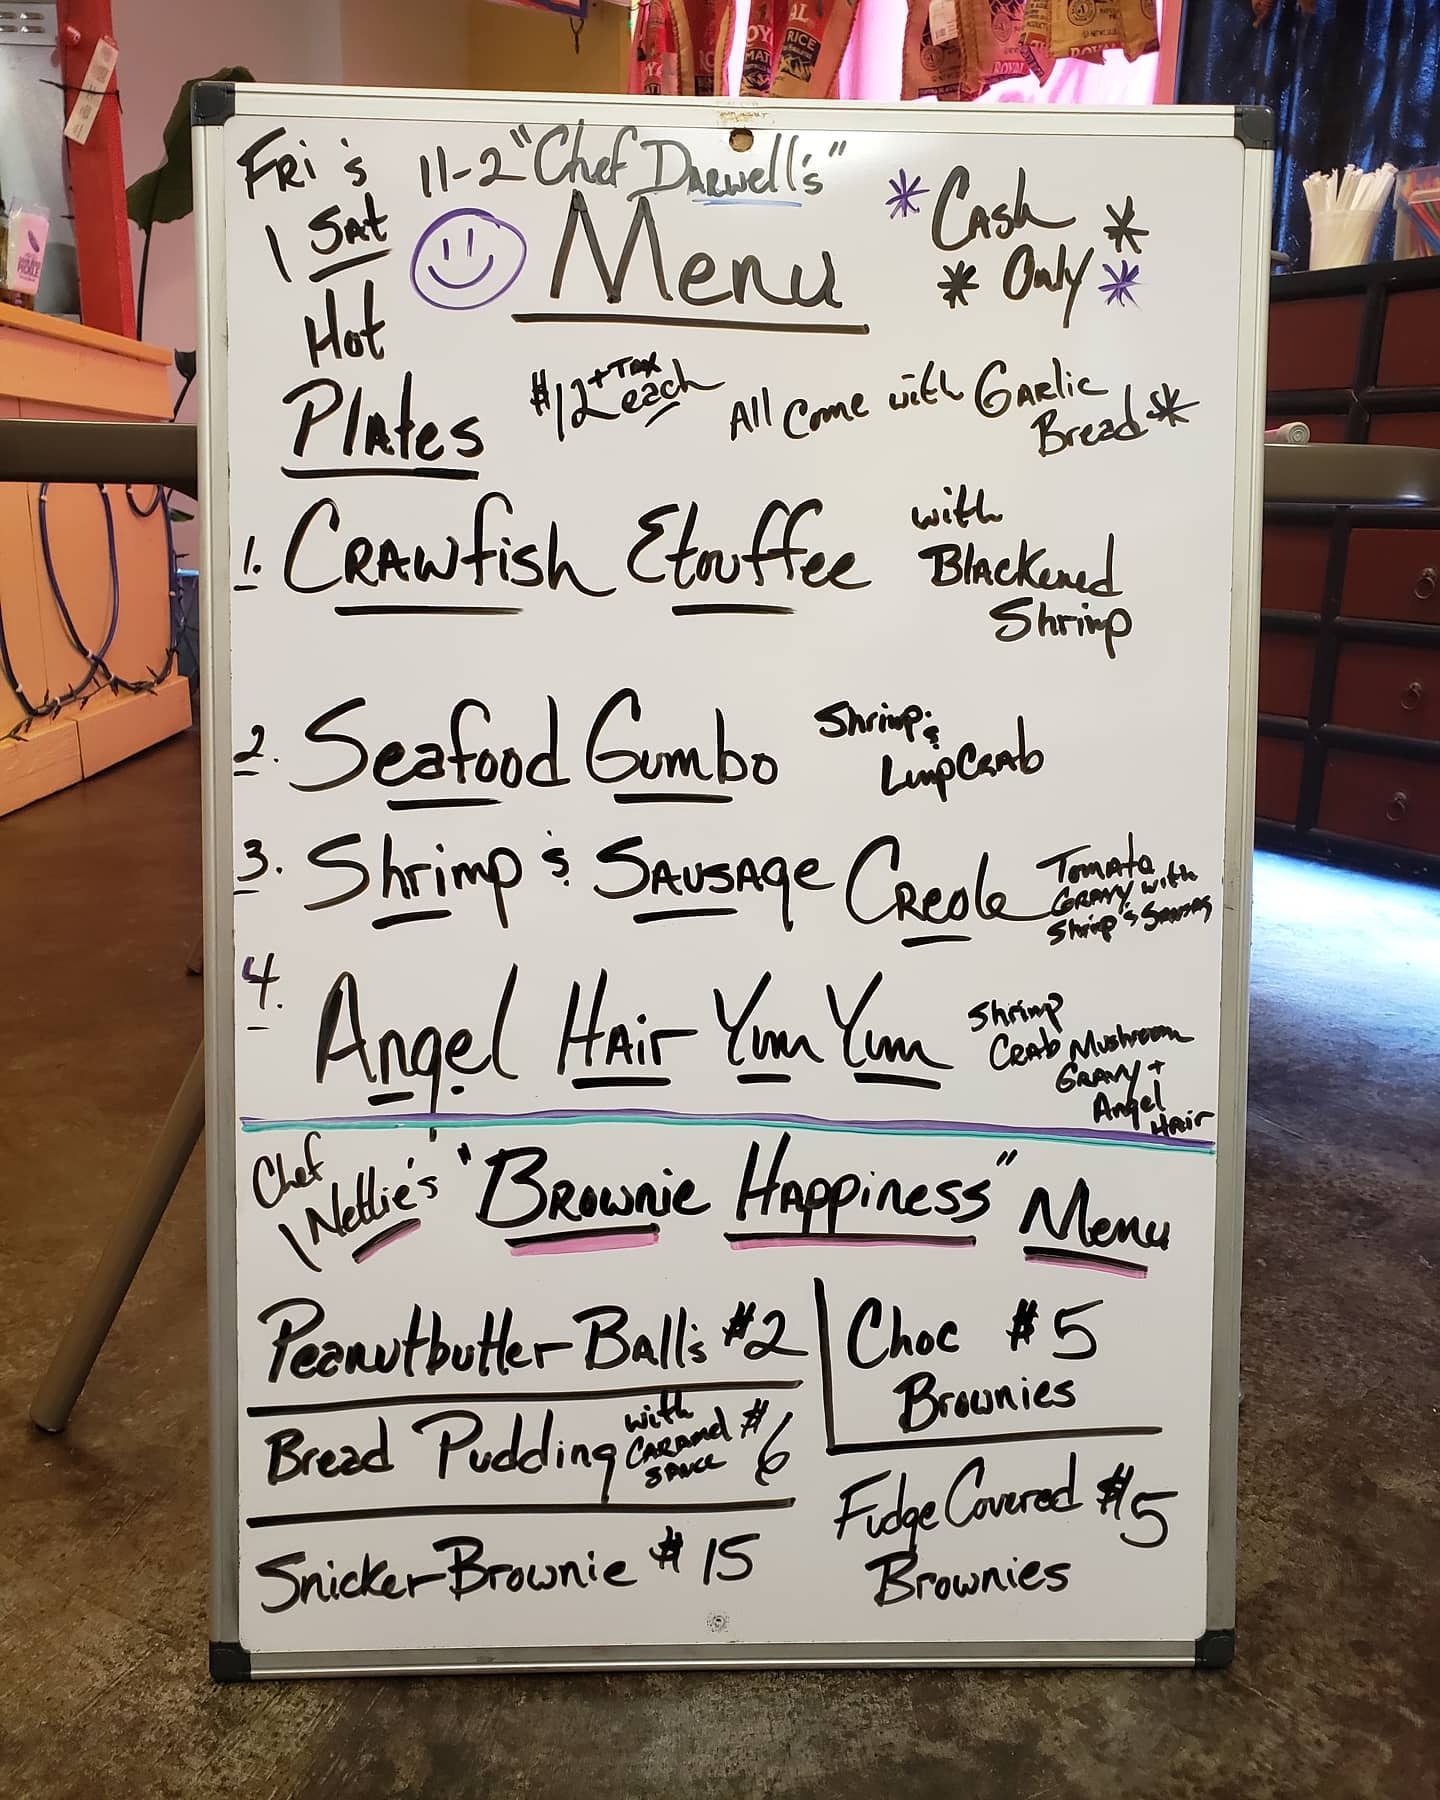 Fri & 11-2 "Chef Darwell's"
Sat
Menu
* Cash *
* Only *
Hot
Plates
$12 + Tax each
All Come with Garlic Bread *
1. Crawfish Etouffee with
Blackened
Shrimp
2. Seafood Gumbo Shrimp &
Lump Crab
3. Shrimp & Sausage Creole Tomato
Gravy with
Shrimp & Sausag
4. Angel Hair Yum Yum Shrimp
Crab Mushroom
Gravy +
Angel
Hair
Chef
Nettie's "Brownie Happiness" Menu
Peanutbutter Balls $2
Choc $5
Brownies
Bread Pudding with Caramel Sauce $6
Fudge Covered $5
Brownies
Snicker Brownie $15
RICE
ROYAL